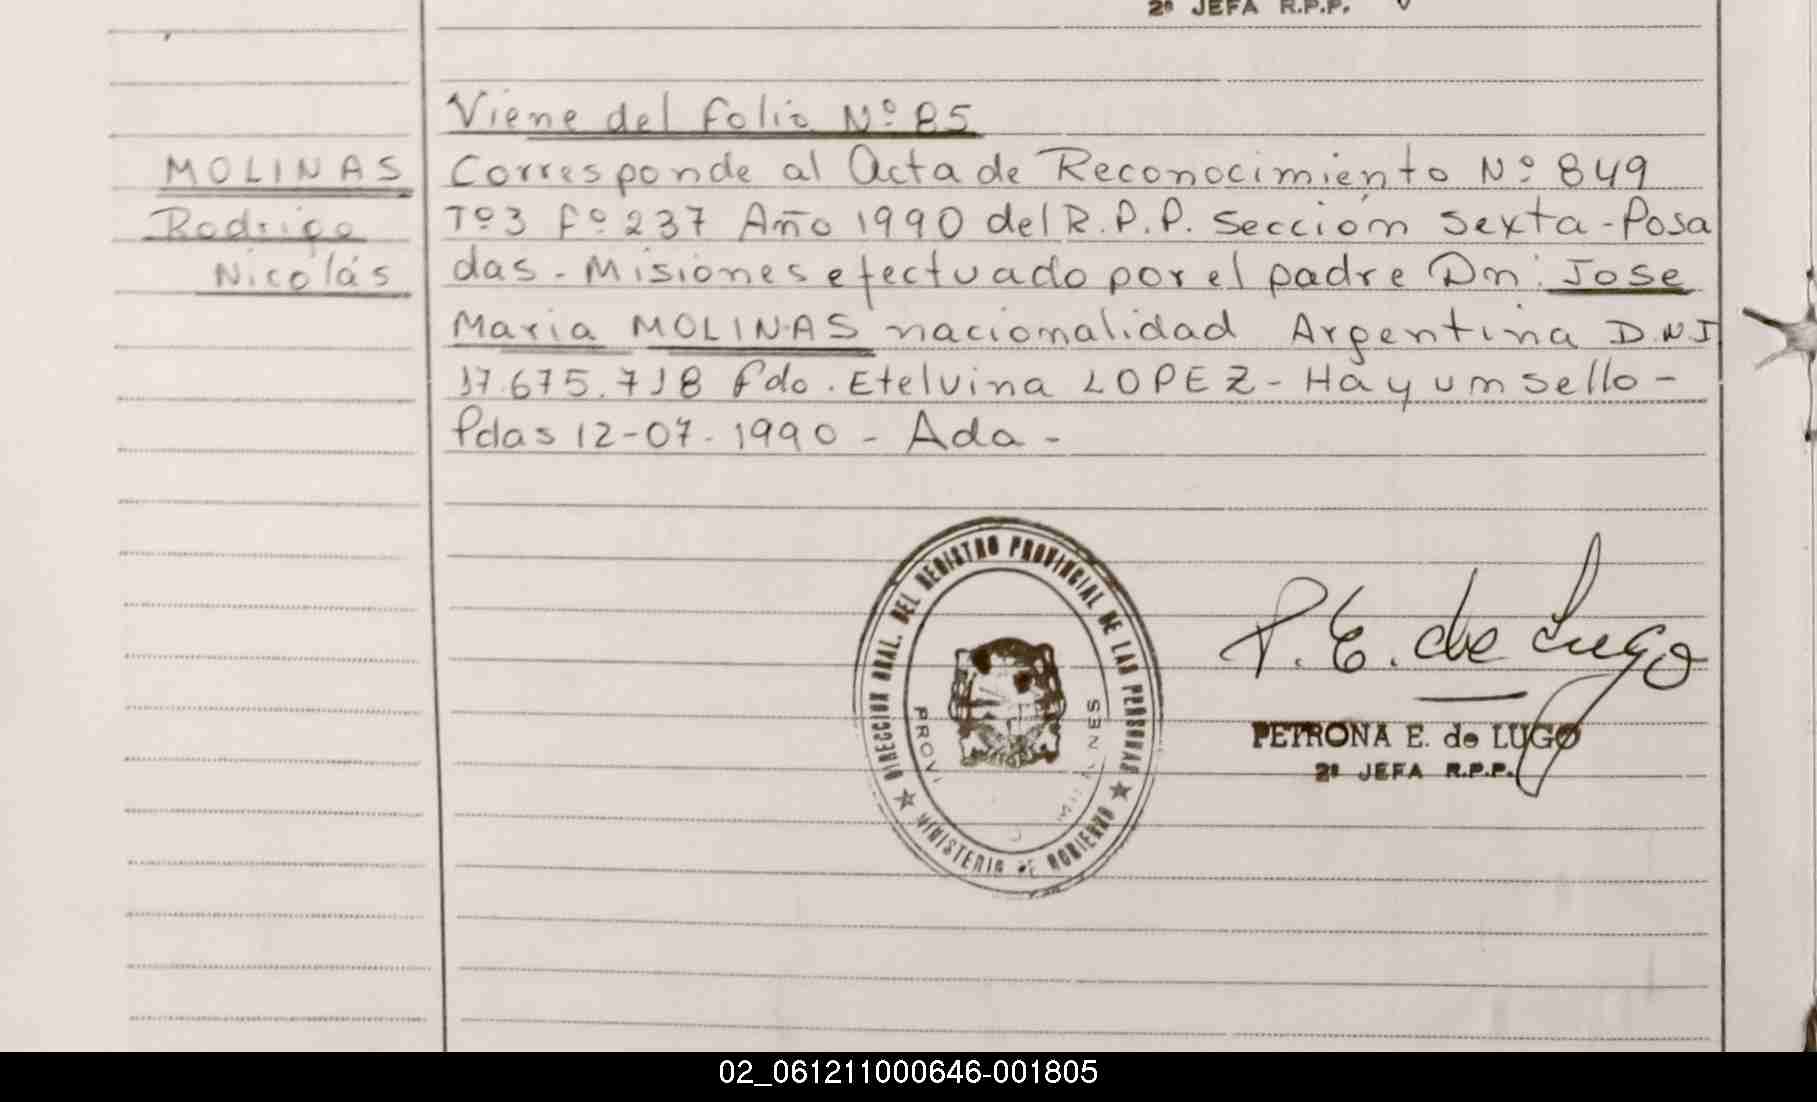 2º JEFA R.P.P.
Viene del folio Nº 85
MOLINAS
Rodrigo
Nicolás
Corresponde al Acta de Reconocimiento Nº 849
Tº3 fº 237 Año 1990 del R.P.P. Sección Sexta-Posa
das-Misiones efectuado por el padre Dn. Jose
Maria MOLINAS nacionalidad Argentina D.N.I
17.675.718 fdo. Etelvina LOPEZ - Hay un sello -
Pdas 12-07-1990 - Ada -
DIRECCION GRAL. DEL REGISTRO PROVINCIAL DE LAS PERSONAS
MINISTERIO DE GOBIERNO
P. E. de Lugo
PETRONA E. de LUGO
2º JEFA R.P.P.
02_061211000646-001805